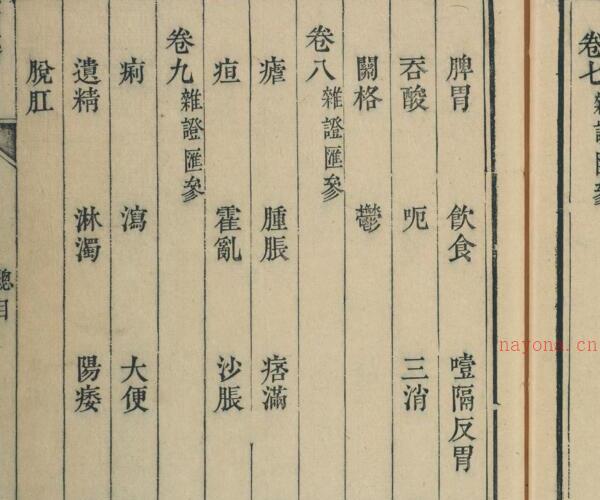 卷七雜證匯參
脾胃 飲食 噎隔反胃
吞酸 呃 三消
關格 鬱
卷八雜證匯參
瘧 腫脹 痞滿
疸 霍亂 沙脹
卷九雜證匯參
痢 瀉 大便
遺精 淋濁 陽痿
脫肛
總目
nayona.cn